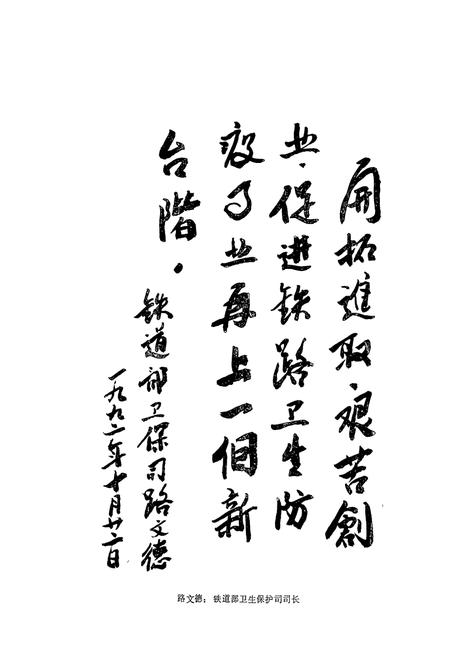 开拓進取、艰苦創
业、促進铁路卫生防
疫事业再上一個新
台階。
铁道部卫保司路文德
一九九二年十月廿二日
路文德：铁道部卫生保护司司长